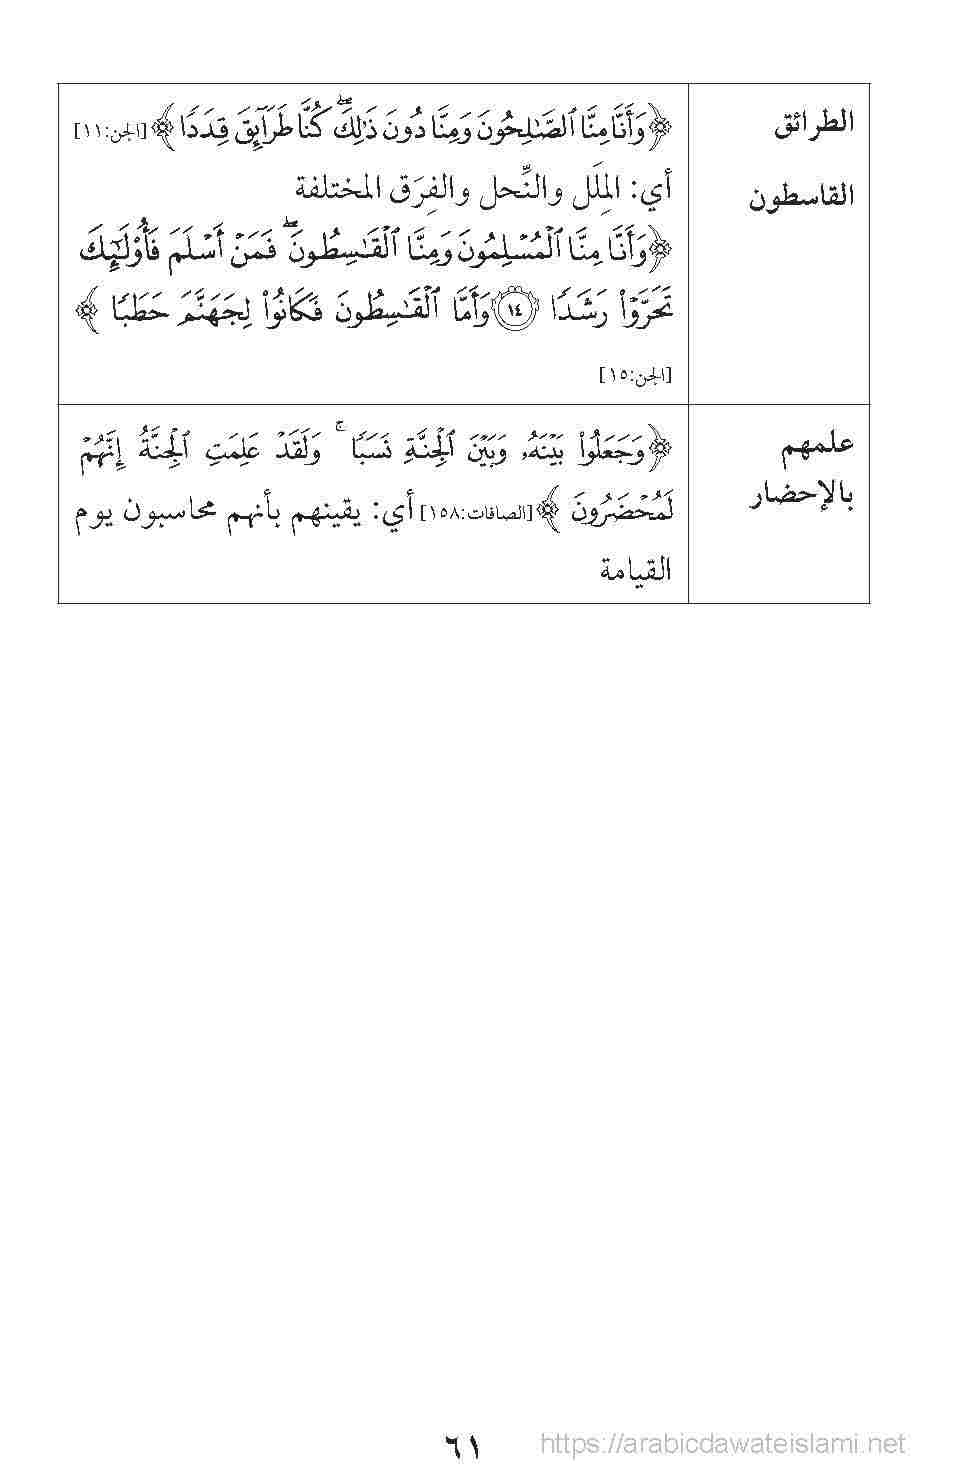 الطرائق
القاسطون
﴿وَأَنَّا مِنَّا ٱلصَّٰلِحُونَ وَمِنَّا دُونَ ذَٰلِكَۖ كُنَّا طَرَآئِقَ قِدَدٗا﴾ [الجن:١١]
أي: المِلَل والنِّحل والفِرَق المختلفة
﴿وَأَنَّا مِنَّا ٱلۡمُسۡلِمُونَ وَمِنَّا ٱلۡقَٰسِطُونَۖ فَمَنۡ أَسۡلَمَ فَأُوْلَٰٓئِكَ
تَحَرَّوۡاْ رَشَدٗا ١٤ وَأَمَّا ٱلۡقَٰسِطُونَ فَكَانُواْ لِجَهَنَّمَ حَطَبٗا﴾
[الجن:١٥]
علمهم
بالإحضار
﴿وَجَعَلُواْ بَيۡنَهُۥ وَبَيۡنَ ٱلۡجِنَّةِ نَسَبٗاۚ وَلَقَدۡ عَلِمَتِ ٱلۡجِنَّةُ إِنَّهُمۡ
لَمُحۡضَرُونَ﴾ [الصافات:١٥٨] أي: يقينهم بأنهم محاسبون يوم
القيامة
٦١
https://arabicdawateislami.net